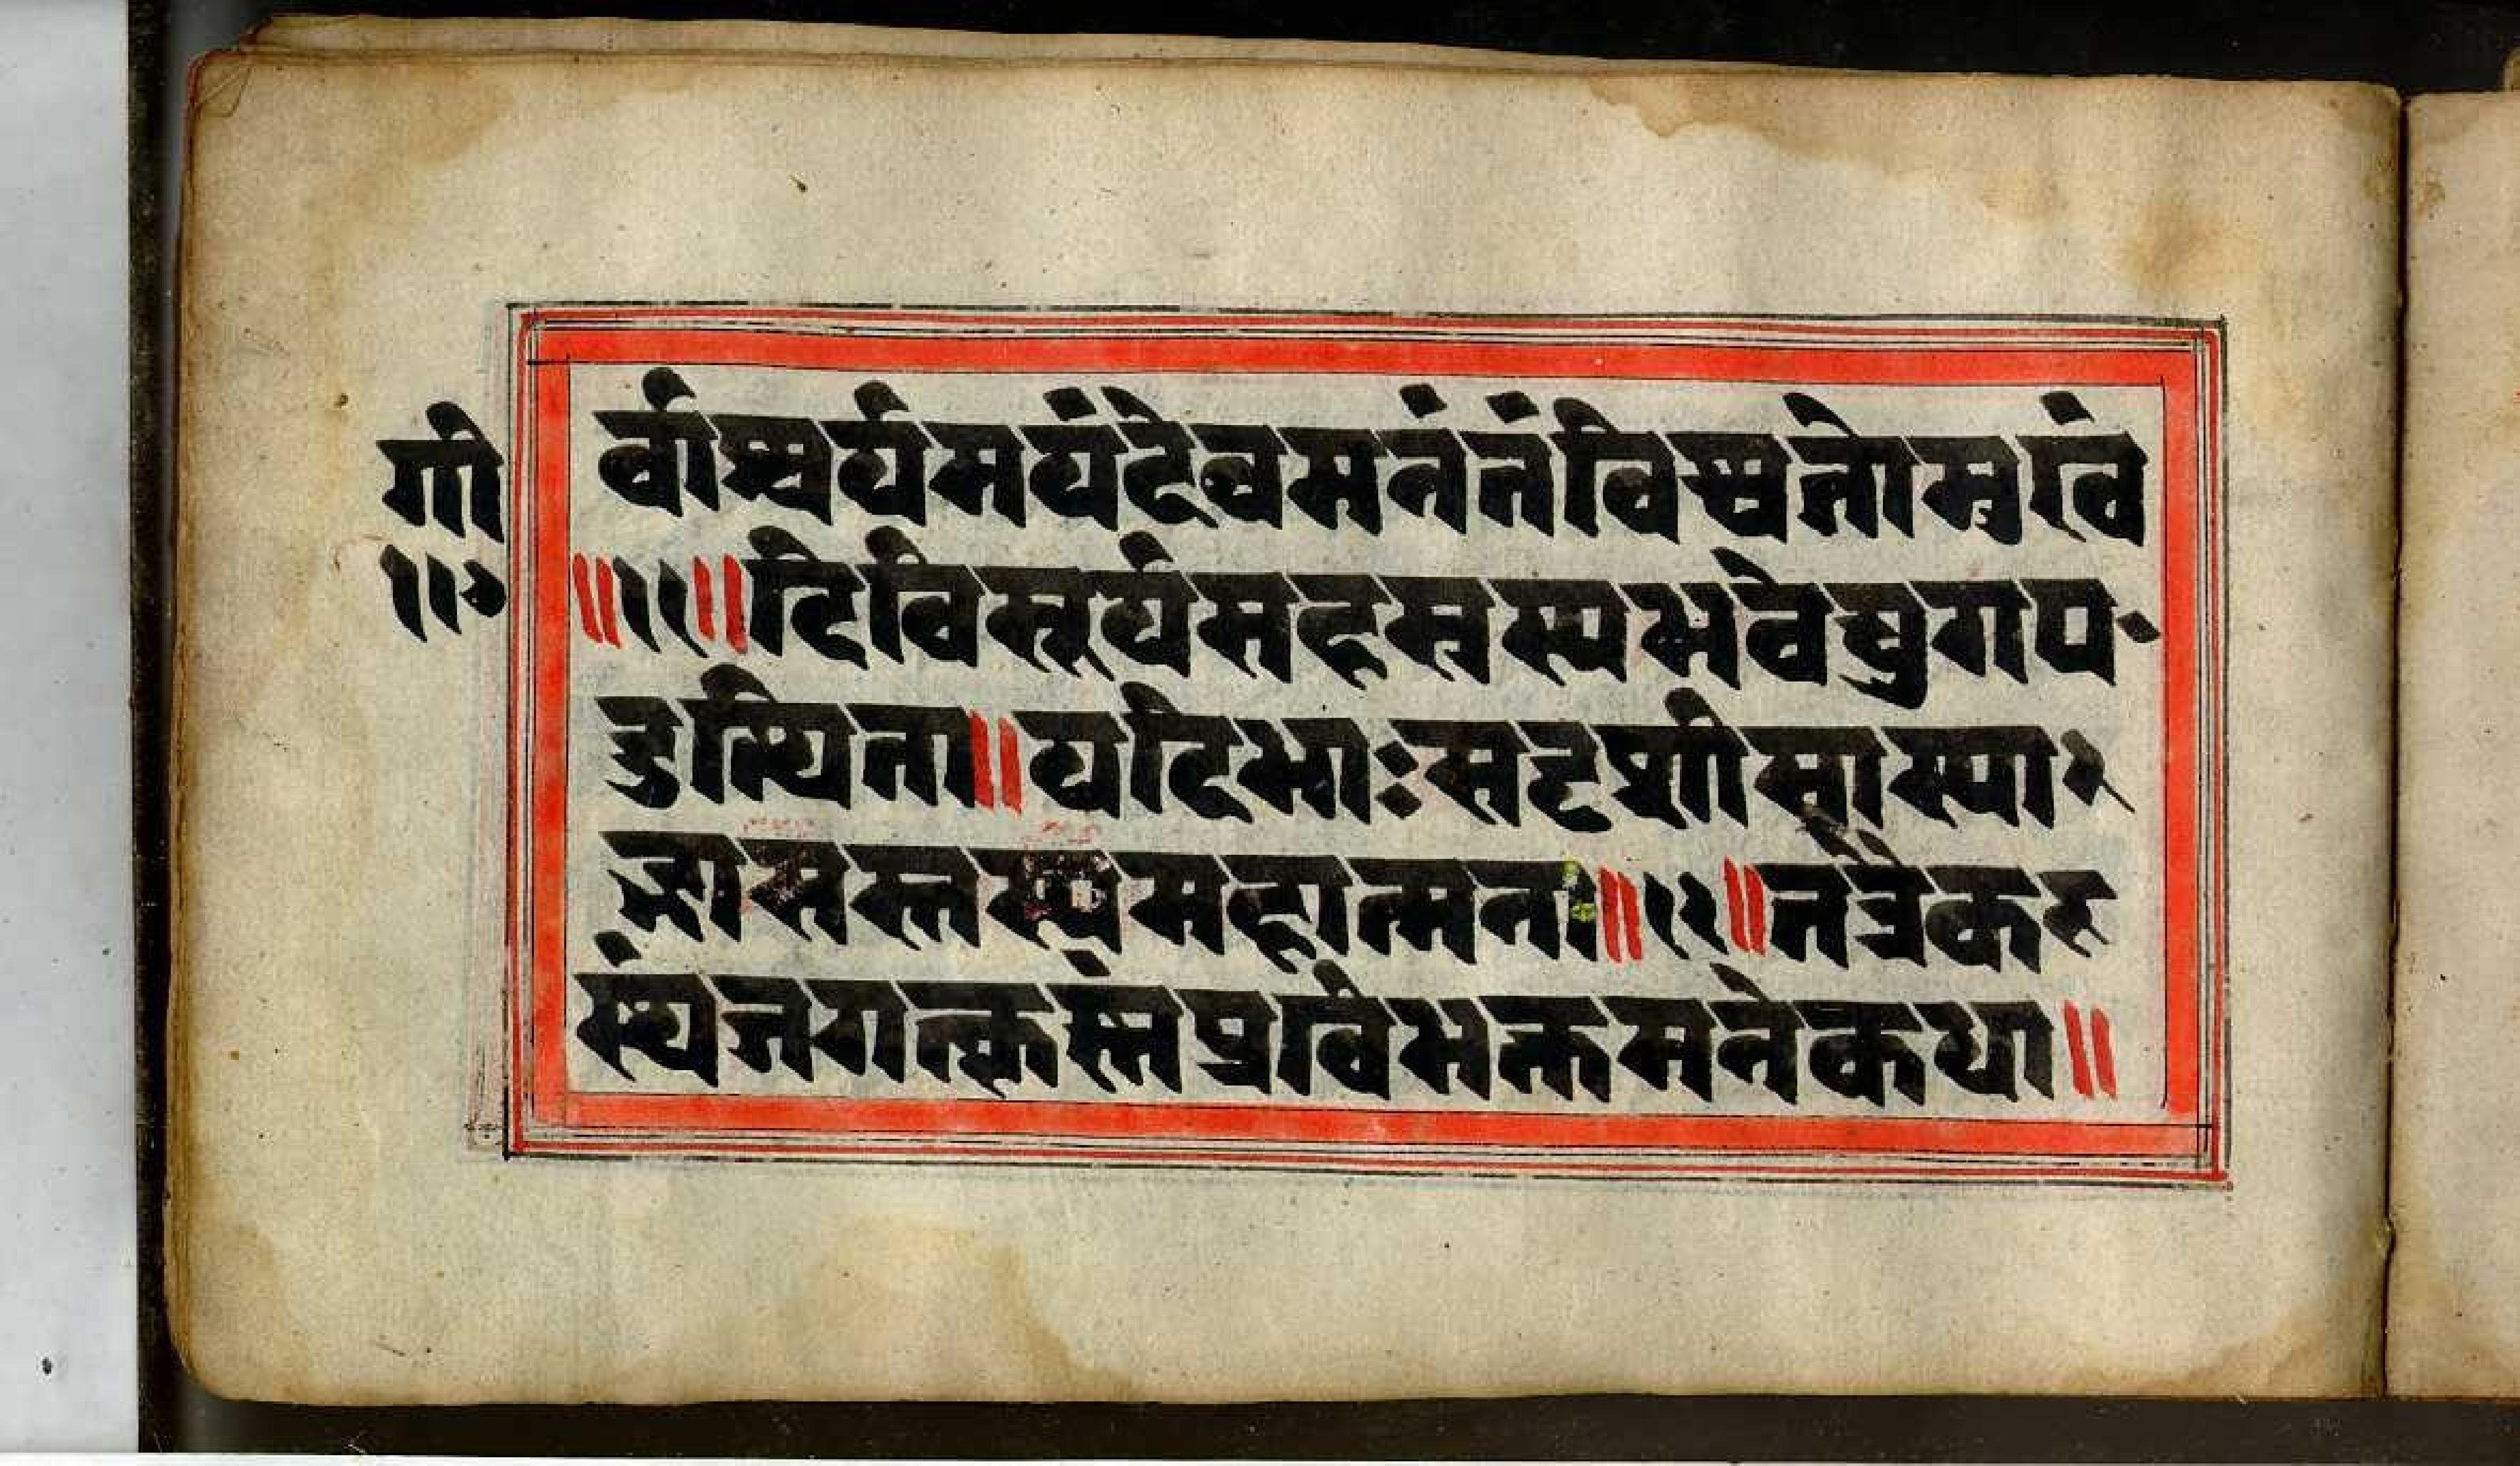 गी
॥॰
र्वाश्चर्यमयंदेवमनंतंविश्वतोमुखं
॥११॥दिविसूर्यसहस्रस्यभवेद्युगप
दुत्थिता॥यदिभाःसदृशीसास्या
द्भासस्तस्यमहात्मनः॥१२॥तत्रैक
स्थंजगत्कृत्स्नंप्रविभक्तमनेकधा॥